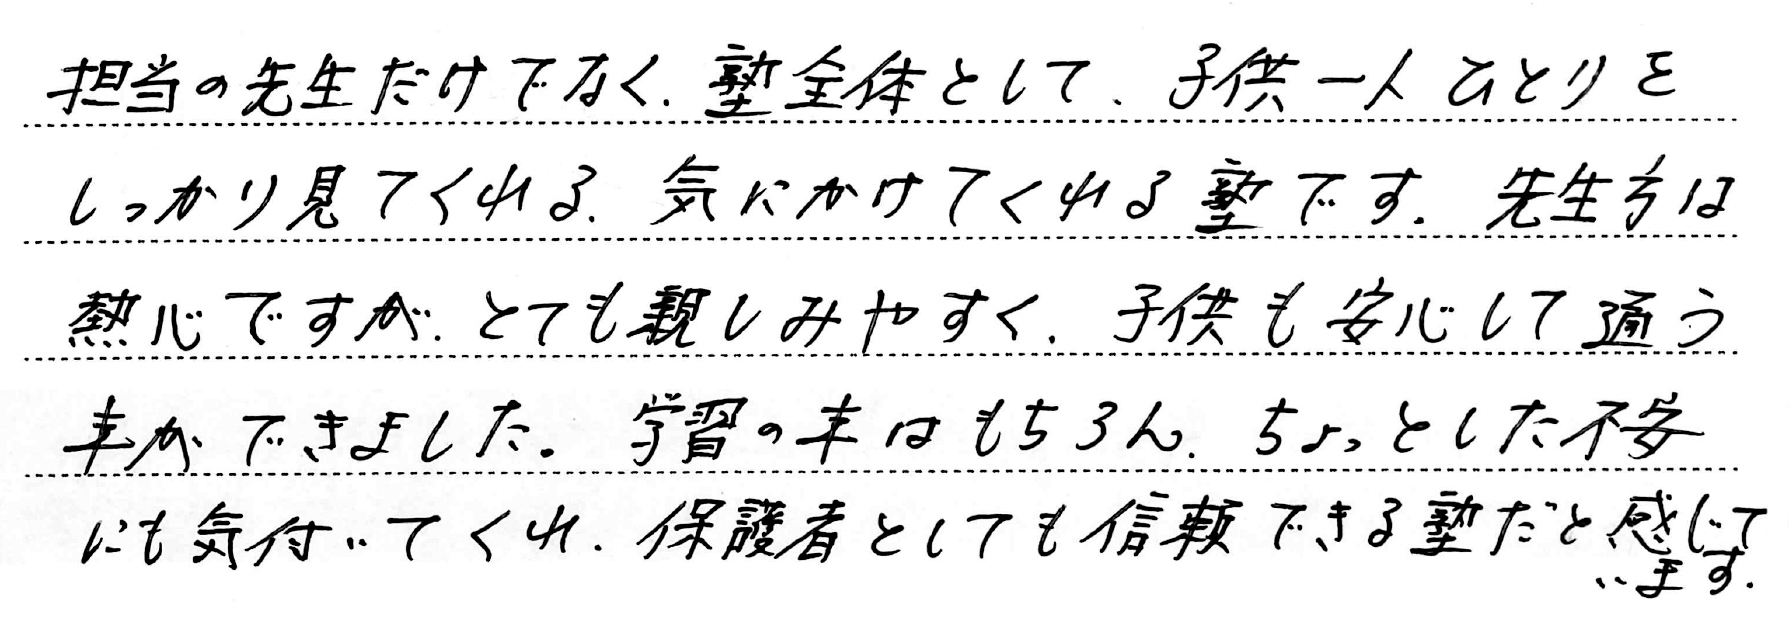 担当の先生だけでなく、塾全体として、子供一人ひとりを
しっかり見てくれる、気にかけてくれる塾です。先生方は
熱心ですが、とても親しみやすく、子供も安心して通う
事ができました。学習の事はもちろん、ちょっとした不安
にも気付いてくれ、保護者としても信頼できる塾だと感じて
います。